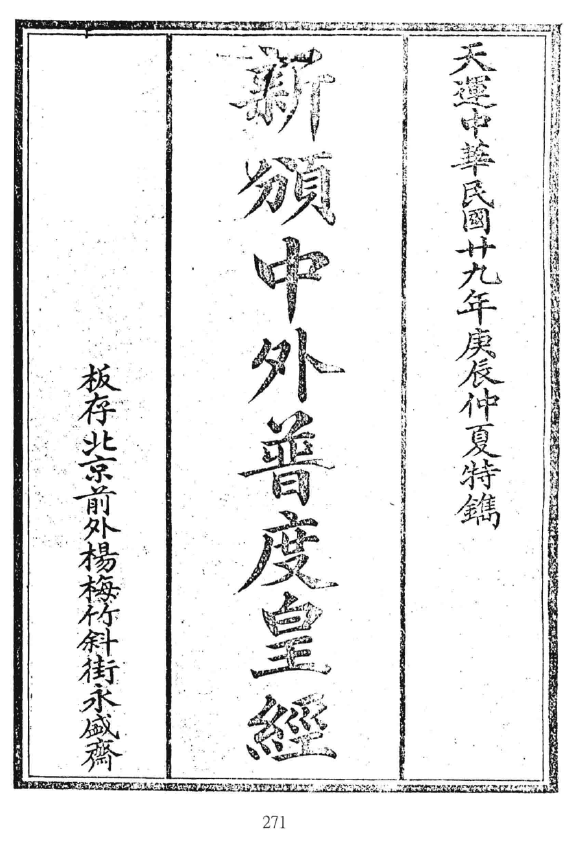 天運中華民國廿九年庚辰仲夏特鐫
新頒中外普度皇經
板存北京前外楊梅竹斜街永盛齋
271